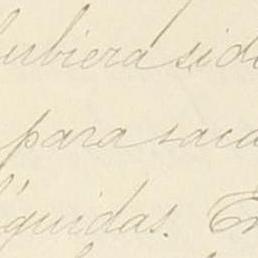 hubiera sido
para saca
líquidas. En